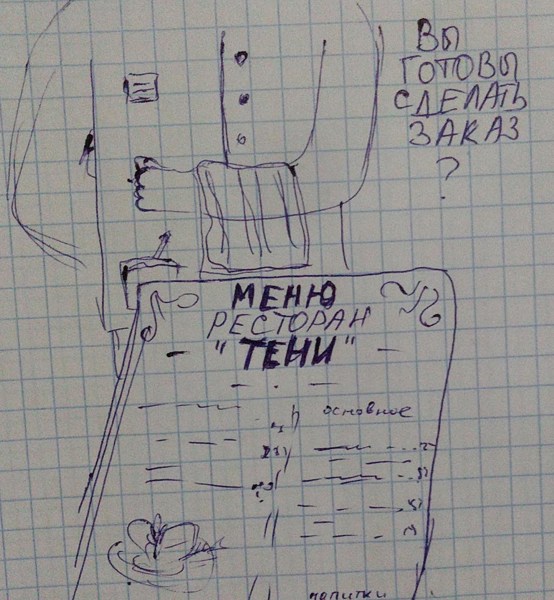 ВЫ
ГОТОВЫ
СДЕЛАТЬ
ЗАКАЗ
?
МЕНЮ
РЕСТОРАН
"ТЕНИ"
основное
напитки